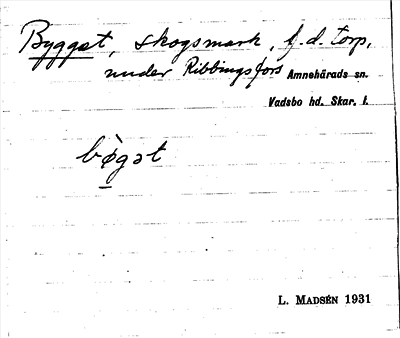 Bygget, skogsmark, f.d. torp,
under Ribbingsfors Amnehärads sn.
Vadsbo hd. Skar. l.
bø̀gət
L. MADSÉN 1931